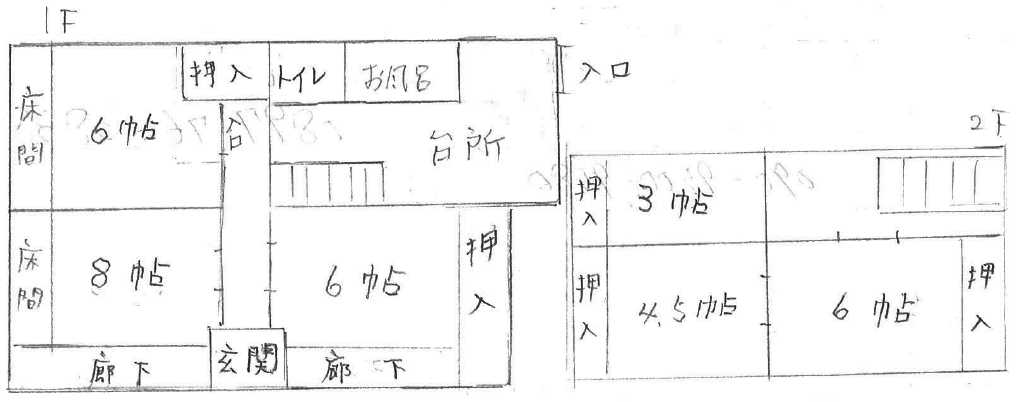 1F
押入
トイレ
お風呂
入口
床間
6帖
台所
床間
8帖
6帖
押入
廊下
玄関
廊下
2F
押入
3帖
押入
4.5帖
6帖
押入